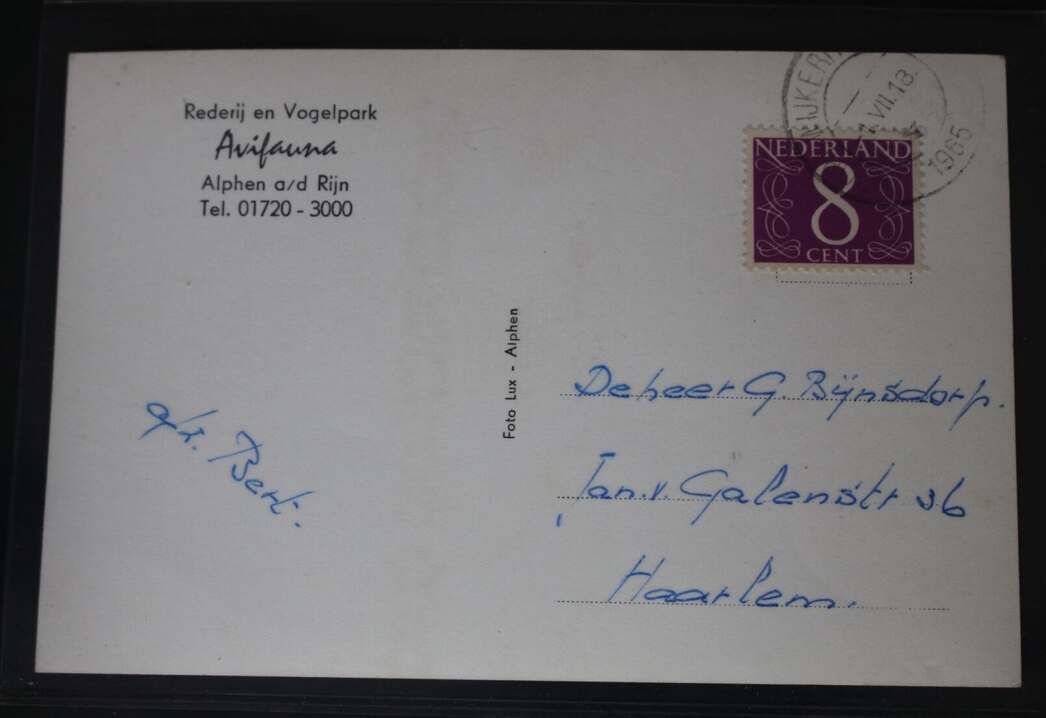 Rederij en Vogelpark
Avifauna
Alphen a/d Rijn
Tel. 01720 - 3000
NEDERLAND
8
CENT
VII.18
1965
Foto Lux - Alphen
a/z. Bert.
Deheer G. Bijnsdorp.
Jan.v. Galenstr 36
Haarlem.